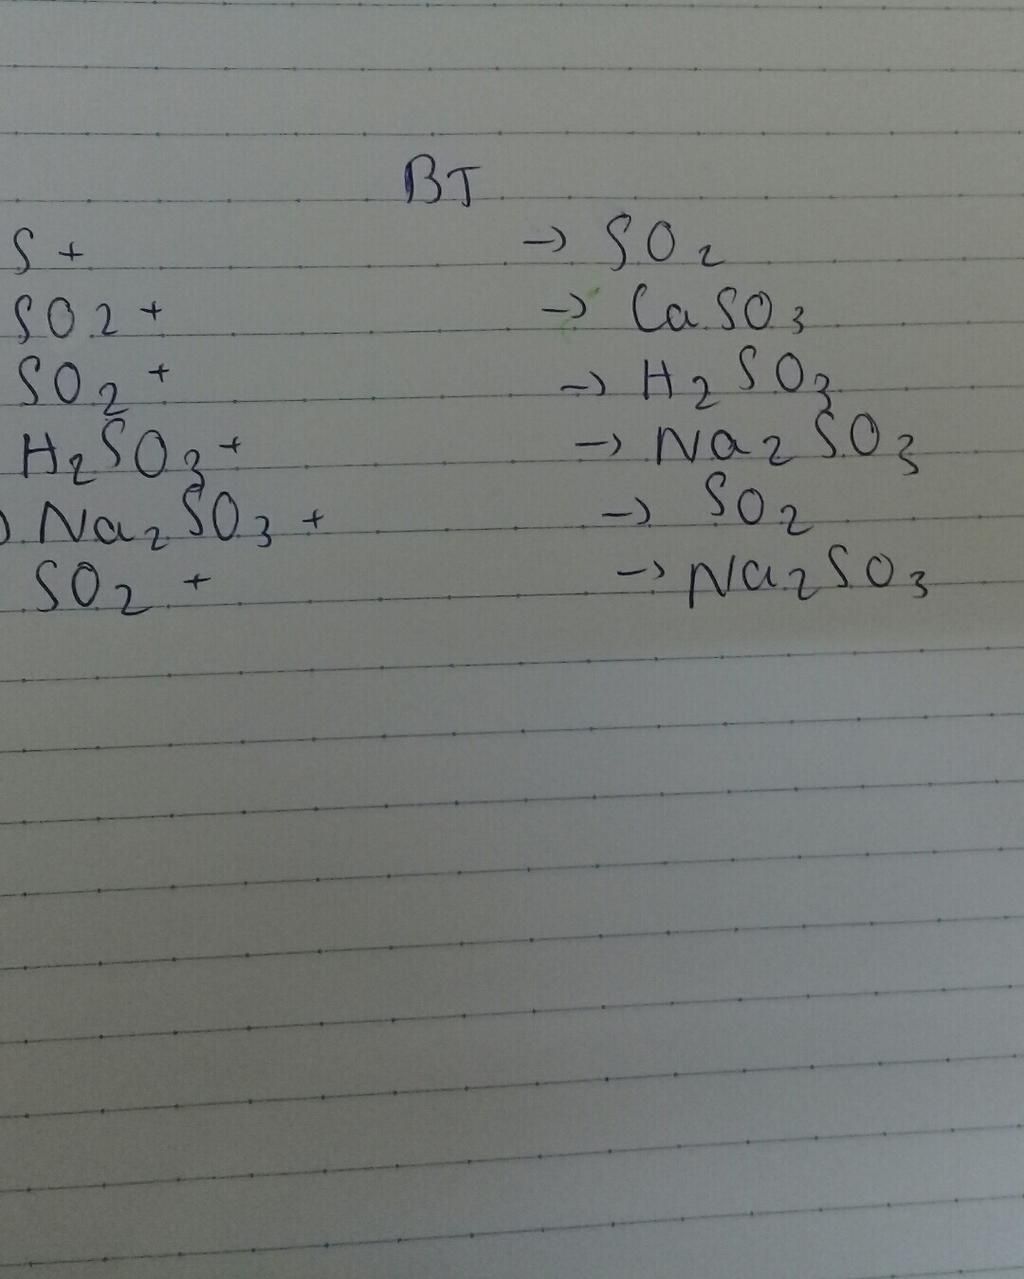 BT
S + -> SO2
SO2 + -> CaSO3
SO2 + -> H2SO3
H2SO3 + -> Na2SO3
) Na2SO3 + -> SO2
SO2 + -> Na2SO3